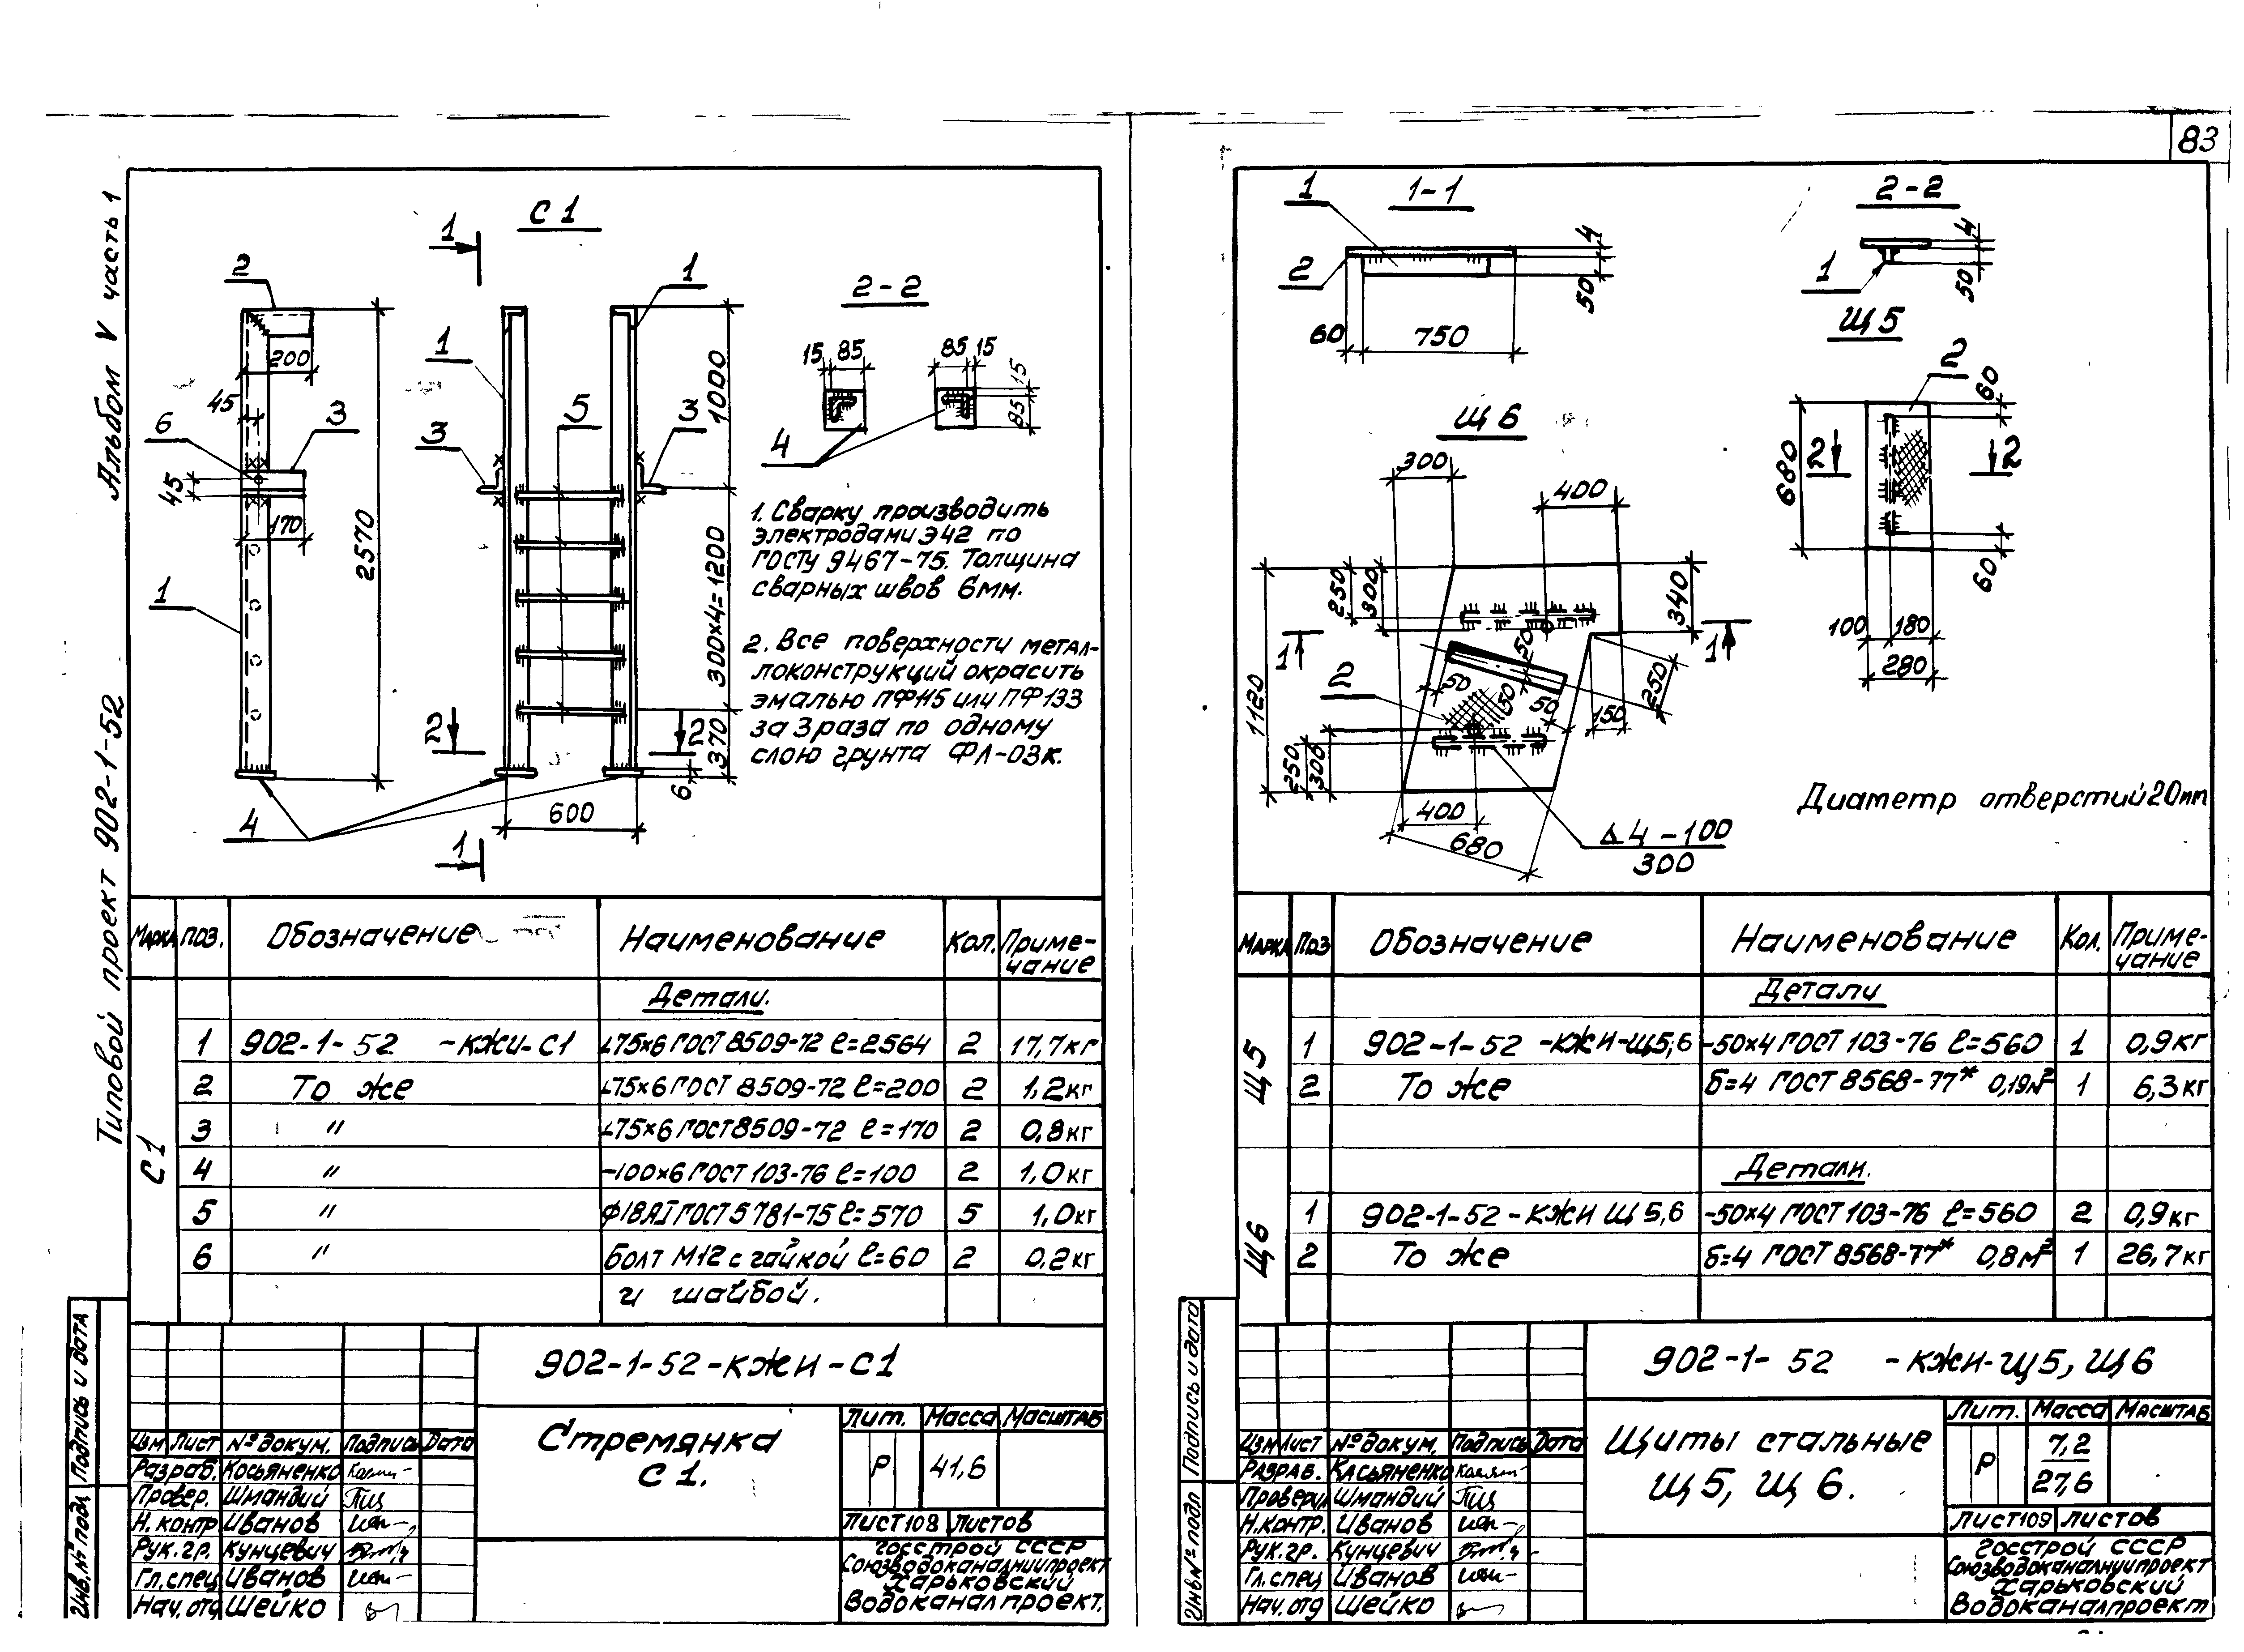 83
Альбом V часть 1
Типовой проект 902-1-52
Подпись и дата
Инв.№ подл
С 1
1
1
2
1
1
2-2
200
45
6
3
45
170
1
2570
4
5
3
3
1000
300×4=1200
370
2
2
6
600
1
15 85
85 15
15
85
4
1. Сварку производить
электродами Э42 по
ГОСТу 9467-75. Толщина
сварных швов 6мм.
2. Все поверхности метал-
локонструкций окрасить
эмалью ПФ115 или ПФ133
за 3 раза по одному
слою грунта ФЛ-03к.
Марка поз. Обозначение Наименование Кол. Приме-
чание
Детали.
С1
1 902-1-52 -кжи-С1 ∟75×6 ГОСТ 8509-72 ℓ=2564 2 17,7кг
2 То же ∟75×6 ГОСТ 8509-72 ℓ=200 2 1,2кг
3 " ∟75×6 ГОСТ 8509-72 ℓ=170 2 0,8кг
4 " -100×6 ГОСТ 103-76 ℓ=100 2 1,0кг
5 " ф18АI ГОСТ 5781-75 ℓ=570 5 1,0кг
6 " болт М12 с гайкой ℓ=60 2 0,2кг
и шайбой.
902-1-52-кжи-С1
Стремянка
С 1.
Лит. Масса Масштаб
Р 41,6
Лист 108 Листов
Госстрой СССР
Союзводоканалниипроект
Харьковский
Водоканалпроект.
Изм Лист № докум. Подпись Дата
Разраб. Косьяненко
Провер. Шмандий
Н.контр Иванов
Рук.гр. Кунцевич
Гл.спец Иванов
Нач.отд Шейко
1
1-1
2
4
50
60
750
2-2
4
1
50
Щ 5
2
60
680
2
2
60
100 180
280
Щ 6
300
400
250
300
340
1
1
1120
50
2
50
50
50
250
150
250
300
400
680
4-100
300
Диаметр отверстий 20mm
Марка Поз Обозначение Наименование Кол. Приме-
чание
Детали
Щ5
1 902-1-52 -кжи-щ5,6 -50×4 ГОСТ 103-76 ℓ=560 1 0,9кг
2 То же б=4 ГОСТ 8568-77* 0,19м² 1 6,3кг
Детали.
Щ6
1 902-1-52-кжи щ5,6 -50×4 ГОСТ 103-76 ℓ=560 2 0,9кг
2 То же б=4 ГОСТ 8568-77* 0,8м² 1 26,7кг
902-1- 52 -кжи-щ5, щ6
Щиты стальные
щ5, щ6.
Лит. Масса Масштаб
Р 7,2
27,6
Лист 109 Листов
Госстрой СССР
Союзводоканалниипроект
Харьковский
Водоканалпроект
Подпись и дата
Инв№ подл
Изм Лист № докум. Подпись Дата
Разраб. Касьяненко
Проверил Шмандий
Н.контр. Иванов
Рук.гр. Кунцевич
Гл.спец Иванов
Нач.отд Шейко